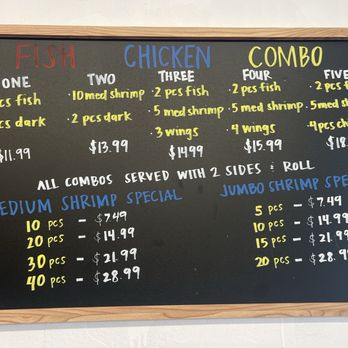 FISH CHICKEN COMBO
ONE TWO THREE FOUR FIVE
cs fish · 10 med shrimp · 2 pcs fish · 2 pcs fish · 2 pcs fis
cs dark · 2 pcs dark · 5 med shrimp · 5 med shrimp · 5 med s
· 3 wings · 4 wings · 4 pcs ch
$11.99 $13.99 $14.99 $15.99 $18.
ALL COMBOS SERVED WITH 2 SIDES & ROLL
EDIUM SHRIMP SPECIAL
10 pcs - $7.49
20 pcs - $14.99
30 pcs - $21.99
40 pcs - $28.99
JUMBO SHRIMP SPE
5 pcs - $7.49
10 pcs - $14.99
15 pcs - $21.99
20 pcs - $28.9